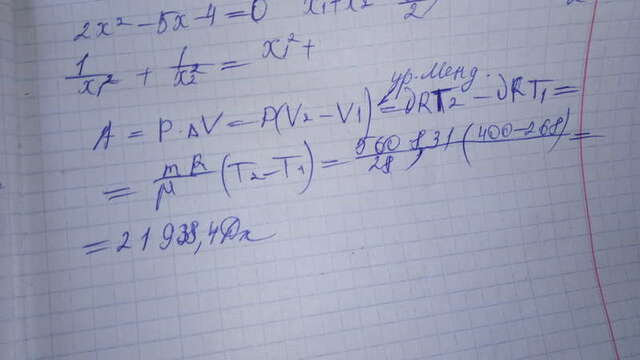 2x² - 5x - 4 = 0 x₁ + x₂ 5/2
1/x₁² + 1/x₂² = x₁² +
ур. Менд.
A = P·ΔV = P(V₂ - V₁) = νRT₂ - νRT₁ =
= mR/μ (T₂ - T₁) = 560·8,31(400-268)/28 =
= 21938,4 Дж